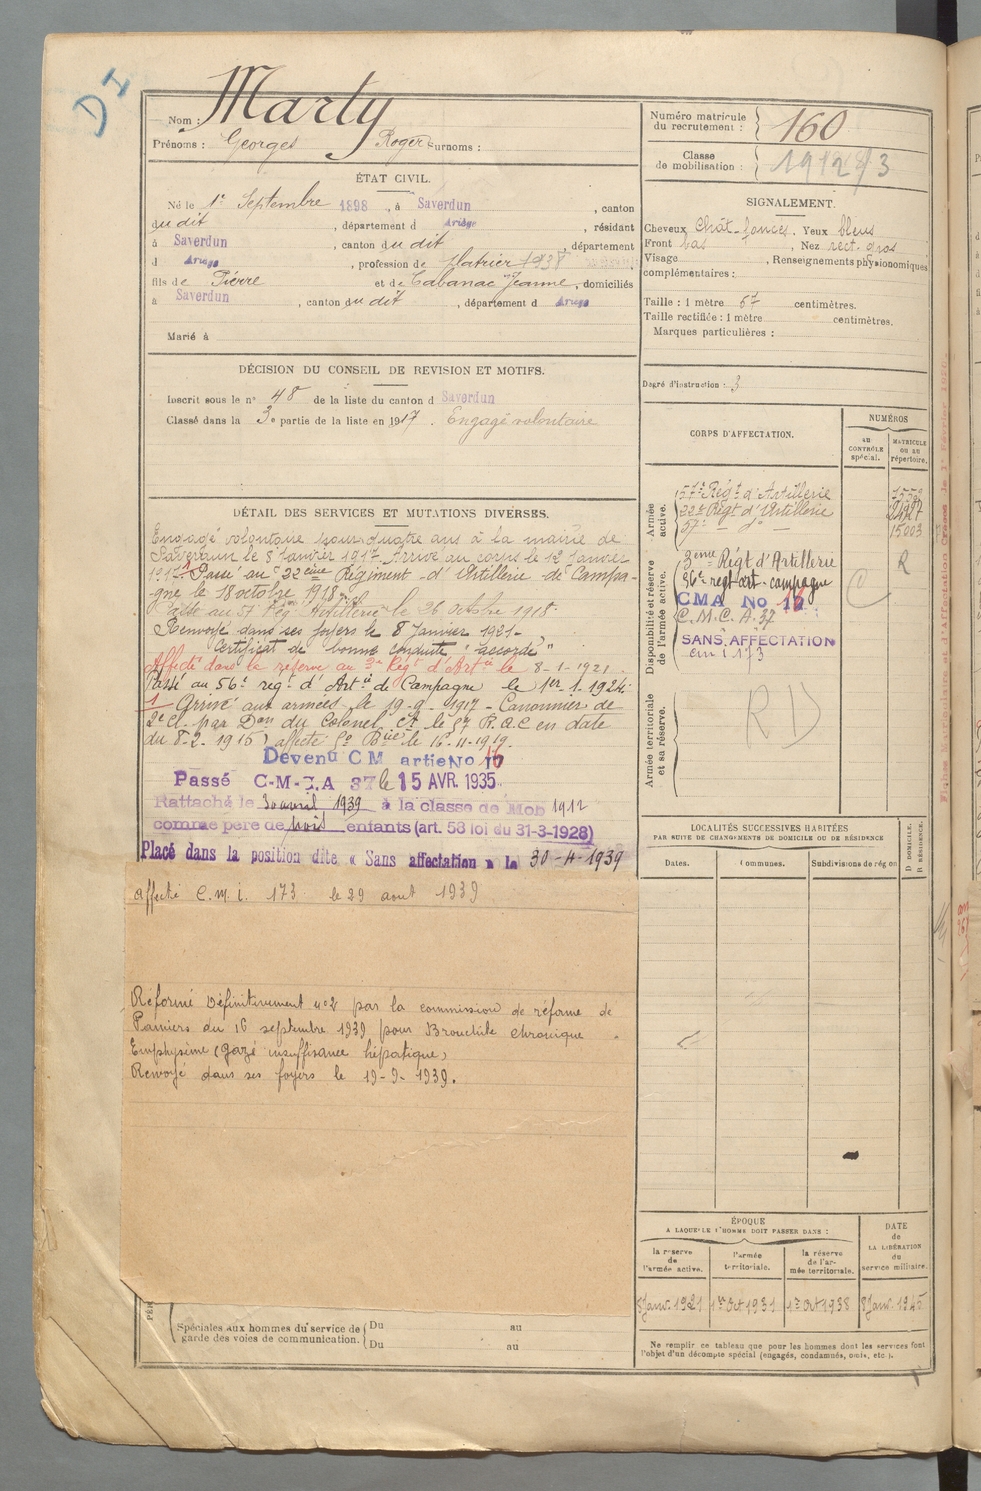 D I
Nom : Marty
Prénoms : Georges Roger Surnoms :
ÉTAT CIVIL.
Né le 1er Septembre 1898, à Saverdun, canton
du dit, département d Ariège, résidant
à Saverdun, canton du dit, département
d Ariège, profession de platrier
fils de Pierre et de Cabanac Jeanne, domiciliés
à Saverdun, canton du dit, département d Ariège
Marié à
DÉCISION DU CONSEIL DE REVISION ET MOTIFS.
Inscrit sous le n° 48 de la liste du canton d Saverdun
Classé dans la 3e partie de la liste en 1917. Engagé volontaire
DÉTAIL DES SERVICES ET MUTATIONS DIVERSES.
Engagé volontaire pour quatre ans à la mairie de
Saverdun le 8 Janvier 1917. Arrivé au corps le 12 Janvier
1917. 1 Passé au 22eme Régiment d'Artillerie de Campa-
gne le 18 octobre 1918.
Passé au 57 Rég Artillerie le 26 octobre 1918.
Renvoyé dans ses foyers le 8 Janvier 1921-
Certificat de bonne conduite "accordé"
Affecté dans la réserve au 3e Régt d'Artie le 8-1-1921.
Passé au 56e regt d'Artie de Campagne le 1er-1-1924.
1 Arrivé aux armées le 19-9-1917 - Canonnier de
2e cl. par Don du Colonel Ct le 57 R.A.C en date
du 8-2-1918) affecté 5e Bie le 16-11-1919.
Devenu CM artie No 16
Passé C-M-C.A 37 le 15 AVR. 1935
Rattaché le 30 avril 1939 à la classe de Mob 1912
comme père de trois enfants (art. 58 loi du 31-3-1928)
Placé dans la position dite « Sans affectation » le 30-4-1939
affecté C.M.I. 173 le 29 aout 1939
Réformé Définitivement n°2 par la commission de réforme de
Pamiers du 16 septembre 1939 pour Bronchite chronique
Emphysème (gazé insuffisance hépatique)
Renvoyé dans ses foyers le 19-9-1939.
PÉR
Spéciales aux hommes du service de
garde des voies de communication.
Du au
Du au
Numéro matricule
du recrutement : 160
Classe
de mobilisation : 1912
SIGNALEMENT.
Cheveux Chât-foncés. Yeux bleus
Front bas, Nez rect. gros
Visage, Renseignements physionomiques
complémentaires :
Taille : 1 mètre 67 centimètres.
Taille rectifiée : 1 mètre centimètres.
Marques particulières :
Degré d'instruction : 3
CORPS D'AFFECTATION.
NUMÉROS
AU
CONTRÔLE
spécial.
MATRICULE
ou au
répertoire.
Armée
active.
57e Régt d'Artillerie
22e Régt d'Artillerie
57e - d° -
15003
Disponibilité et réserve
de l'armée active.
3eme Régt d'Artillerie R
56e regt art. campagne
CMA No 16
C.M.C.A. 37
SANS AFFECTATION
cmi 173
C
Armée territoriale
et sa réserve.
RD
LOCALITÉS SUCCESSIVES HABITÉES
PAR SUITE DE CHANGEMENTS DE DOMICILE OU DE RÉSIDENCE
Dates.
Communes.
Subdivisions de région
D DOMICILE.
R RÉSIDENCE.
ÉPOQUE
A LAQUELLE L'HOMME DOIT PASSER DANS :
la réserve
de
l'armée active.
l'armée
territoriale.
la réserve
de l'ar-
mée territoriale.
DATE
de
LA LIBÉRATION
du
service militaire.
8 Janv. 1921
1er Oct 1931
1er Oct 1938
8 Janv. 1945
Ne remplir ce tableau que pour les hommes dont les services font
l'objet d'un décompte spécial (engagés, condamnés, omis, etc.).